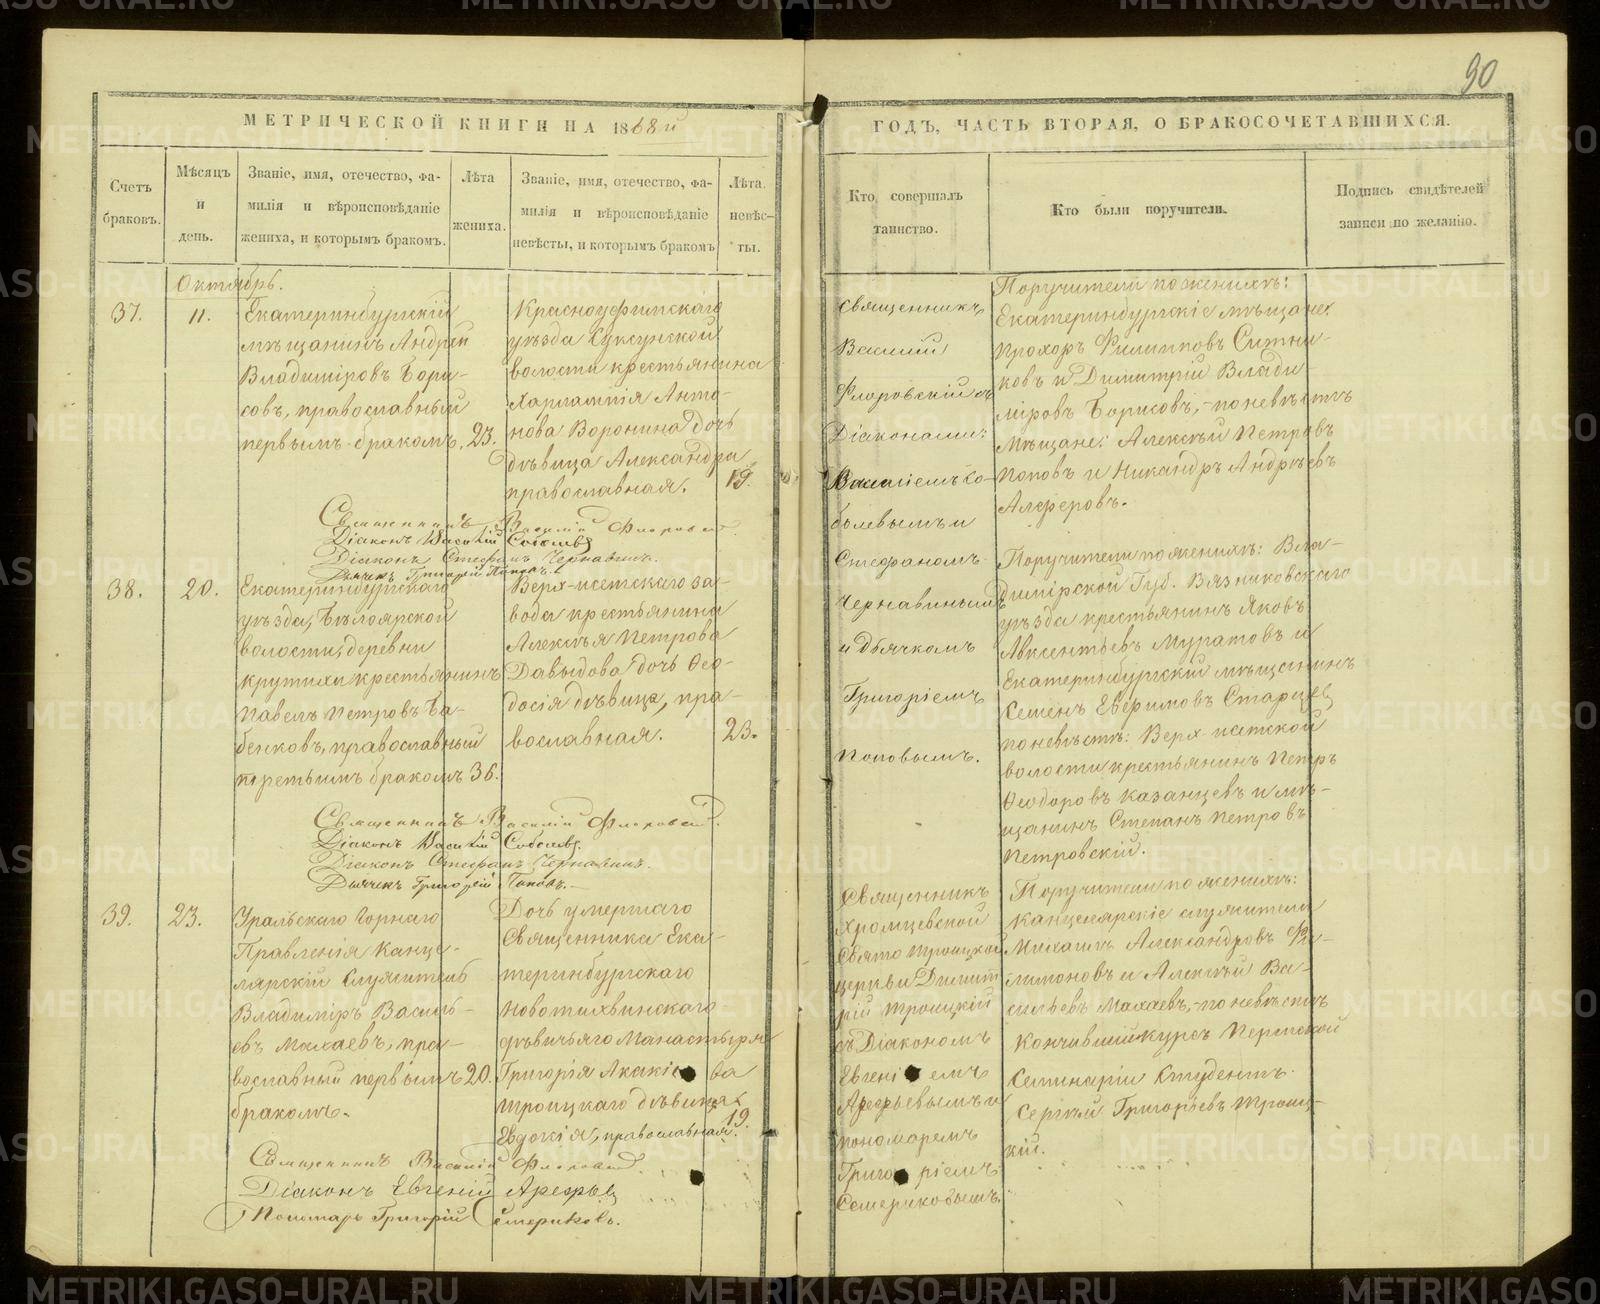 90
МЕТРИЧЕСКОЙ КНИГИ НА 1868й
ГОДЪ, ЧАСТЬ ВТОРАЯ, О БРАКОСОЧЕТАВШИХСЯ.
Счетъ
браковъ.
Мѣсяцъ
и
день.
Званіе, имя, отечество, фа-
милія и вѣроисповѣданіе
жениха, и которымъ бракомъ.
Лѣта
жениха.
Званіе, имя, отечество, фа-
милія и вѣроисповѣданіе
невѣсты, и которымъ бракомъ
Лѣта
невѣс-
ты.
Кто совершалъ
таинство.
Кто были поручители.
Подпись свидѣтелей
записи по желанію.
Октябрь.
37.
11.
Екатеринбургскій
мѣщанинъ Андрей
Владиміровъ Бори-
совъ, православный
первымъ бракомъ.
23.
Красноуфимскаго
уѣзда Суксунской
волости крестьянина
Харлампія Анто-
нова Воронина дочь
дѣвица Александра
православная.
19.
Священникъ
Василий
Флоровскій съ
Діаконами:
Василіемъ Со-
болевымъ и
Стефаномъ
Чернавинымъ
и Дьячкомъ
Григоріемъ
Поповымъ.
Поручители по женихѣ:
Екатеринбургскіе мѣщане
Прохоръ Филипповъ Ситни-
ковъ и Димитрій Влади
міровъ Борисовъ,-по невѣстѣ
Мѣщане: Алексѣй Петровъ
Поповъ и Никандръ Андреевъ
Алферовъ.
Священникъ Василій Флоровскій
Діаконъ Василій Соболевъ
Діаконъ Стефанъ Чернавинъ.
Дьячекъ Григорій Поповъ.
38.
20.
Екатеринбургскаго
уѣзда, Бѣлоярской
волости, деревни
Крутихи крестьянинъ
Павелъ Петровъ Ба-
бенковъ, православный
третьимъ бракомъ
36.
Верх-исетскаго за-
вода крестьянина
Алексѣя Петрова
Давыдова дочь Ѳео-
досія дѣвица, пра-
вославная.
23.
Поручители по женихѣ: Вла-
димірской Губ. Вязниковскаго
уѣзда крестьянинъ Яковъ
Авксентьевъ Муратовъ и
Екатеринбургскій мѣщанинъ
Семенъ Евфимовъ Старцев
по невѣстѣ: Верх-исетской
волости крестьянинъ Петръ
Ѳеодоровъ Казанцевъ и мѣ-
щанинъ Степанъ Петровъ
Петровскій.
Священникъ Василій Флоровскій.
Діаконъ Василій Соболевъ.
Діаконъ Стефанъ Чернавинъ.
Дьячекъ Григорій Поповъ.
39.
23.
Уральскаго Горнаго
Правленія Канце-
лярскій Служитель
Владиміръ Василь-
евъ Махаевъ, пра-
вославный первымъ
бракомъ.
20.
Дочь умершаго
Священника Ека-
теринбургскаго
Новотихвинскаго
дѣвичьяго Манастыря
Григорія Акакіева
Троицкаго дѣвица
Евдокія, православная.
19.
Священникъ
Хромцевской
Свято Троицкой
церкви Димит
рій Троицкій
съ Діакономъ
Евгеніемъ
Арефьевымъ и
пономаремъ
Григоріемъ
Семериковымъ.
Поручители по женихѣ:
Канцелярскіе служители
Михаилъ Александровъ Фи-
липоновъ и Алексѣй Ва-
сильевъ Махаевъ,-по невѣстѣ
Кончившій курсъ Пермской
Семинаріи Студентъ
Сергѣй Григорьевъ Троиц-
кій.
Священникъ Василій Флоровский.
Діаконъ Евгеній Арефьев
Пономарь Григорій Семериковъ.
METRIKI.GASO-URAL.RU